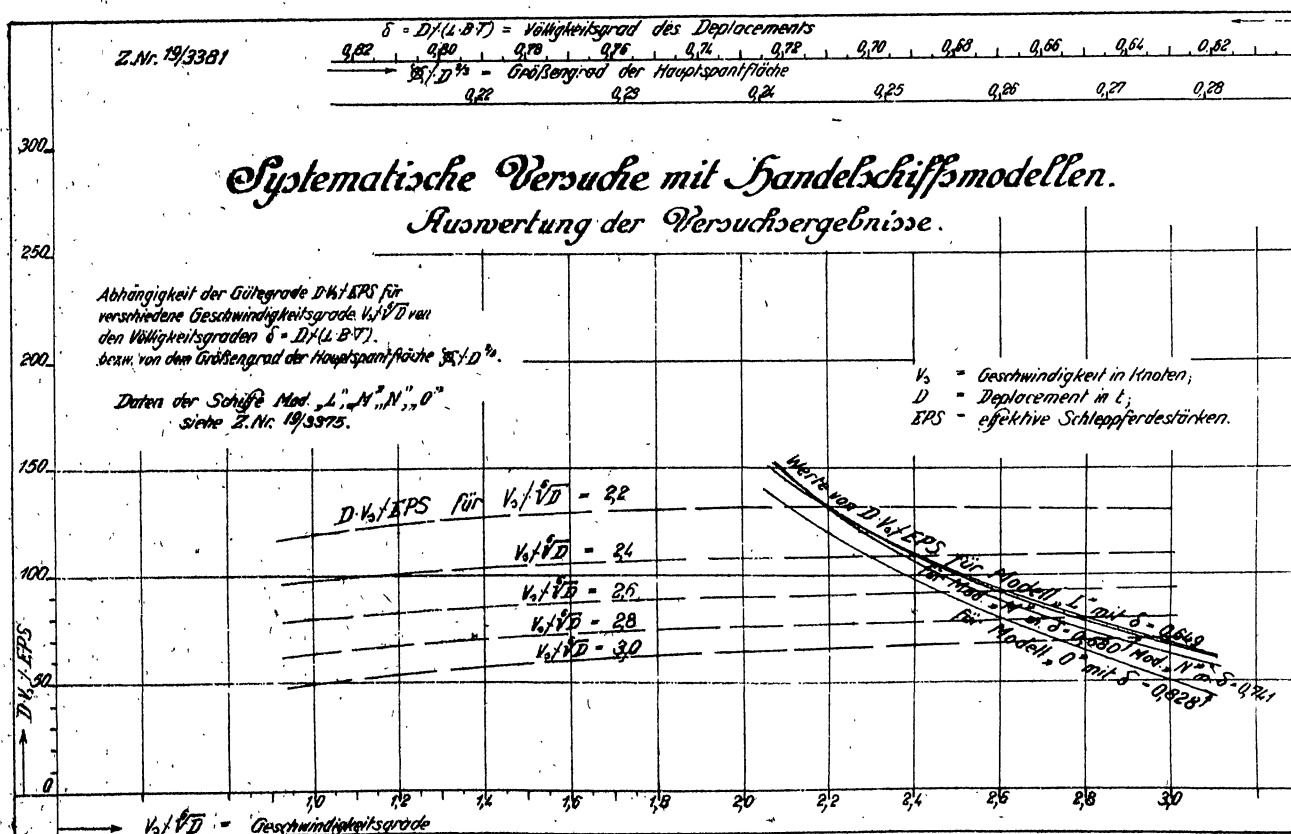 δ = D/(L·B·T) = Völligkeitsgrad des Deplacements
Z.Nr. 19/3381
0,82 0,80 0,78 0,76 0,74 0,72 0,70 0,68 0,66 0,64 0,62
⊠/D^2/3 = Größengrad der Hauptspantfläche
0,22 0,23 0,24 0,25 0,26 0,27 0,28
Systematische Versuche mit Handelschiffsmodellen.
Auswertung der Versuchsergebnisse.
Abhängigkeit der Gütegrade D·V₃/EPS für
verschiedene Geschwindigkeitsgrade V₃/⁶√D von
den Völligkeitsgraden δ = D/(L·B·T).
bezw. von dem Größengrad der Hauptspantfläche ⊠/D^2/3.
Daten der Schiffe Mod. „L", „M", „N", „O"
siehe Z.Nr. 19/3375.
V₃ = Geschwindigkeit in Knoten;
D = Deplacement in t;
EPS = effektive Schleppferdestärken.
300
250
200
150
100
50
0
D·V₃/EPS
D·V₃/EPS für V₃/⁶√D = 2,2
V₃/⁶√D = 2,4
V₃/⁶√D = 2,6
V₃/⁶√D = 2,8
V₃/⁶√D = 3,0
Werte von D·V₃/EPS für Modell „L" mit δ = 0,649
für Mod. „M" m. δ = 0,680
Mod. „N" m. δ = 0,741
für Modell „O" mit δ = 0,828
1,0 1,2 1,4 1,6 1,8 2,0 2,2 2,4 2,6 2,8 3,0
V₃/⁶√D = Geschwindigkeitsgrade